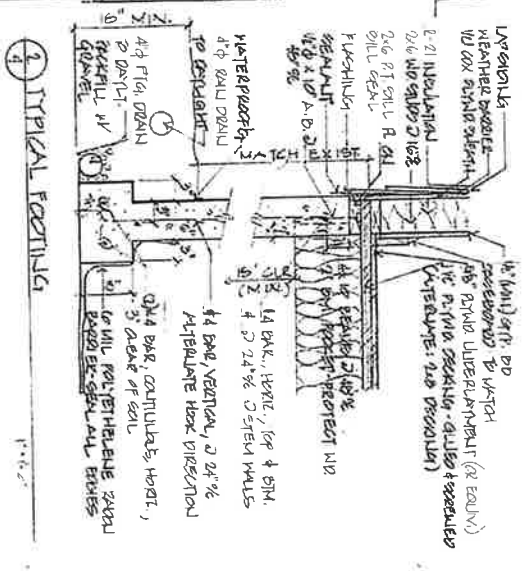 LAP SIDING
WEATHER BARRIER
1/2 CDX PLYWD SHEATH
R-21 INSULATION
2x6 WD STUDS @ 16"%
2x6 P.T. SILL PL ON
SILL SEAL
FLASHING
SEALANT
1/2"φ x 10" A.B. @
48"%
WATERPROOFG.
4"φ RAIN DRAIN
TO DAYLIGHT
4"φ FTG. DRAIN
TO DAYLT.
BACKFILL W/
GRAVEL
1/2" (MIN) GYP. BD
5/8" PLYWD UNDERLAYMENT (OR EQUIV.)
PLYWD DECKING - GLUED & SCREWED
(ALTERNATE: 2x8 DECKING)
4x8 BEAMS @ 48"%
BM POCKET - PROTECT WD
18" CLR
(MIN)
#4 BAR, HORIZ., TOP & BTM.
& @ 24"% @ STEM WALLS
#4 BAR, VERTICAL, @ 24"%
ALTERNATE HOOK DIRECTION
(2) #4 BAR, CONTINUOUS, HORIZ.,
3" CLEAR OF SOIL
6 MIL POLYETHELENE RADON
BARRIER - SEAL ALL EDGES
2
4
TYPICAL FOOTING